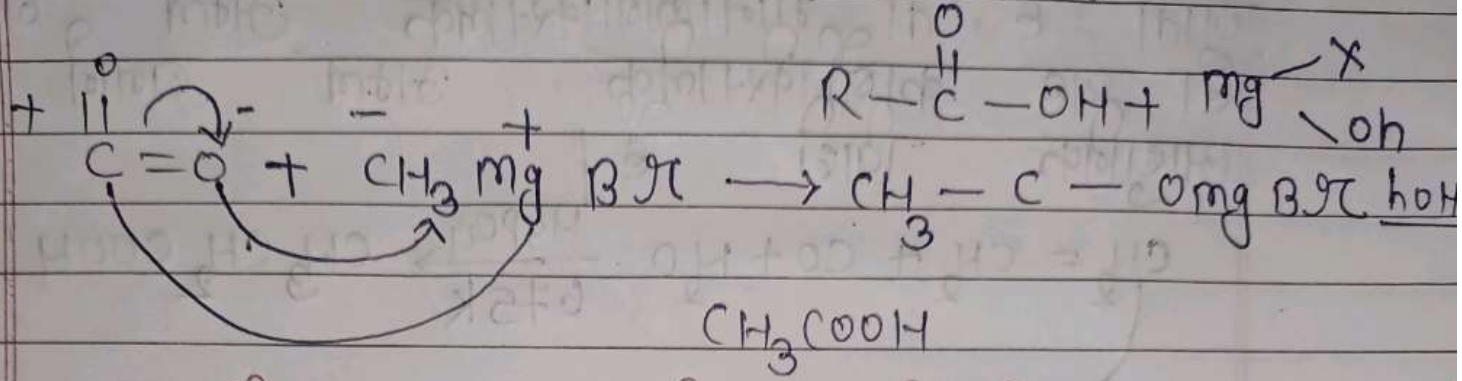 O
O ||
+ || - - + R - C - OH + Mg X
Oh
C = O + CH3 Mg BR → CH3 - C - OMg BR hOH
CH3COOH